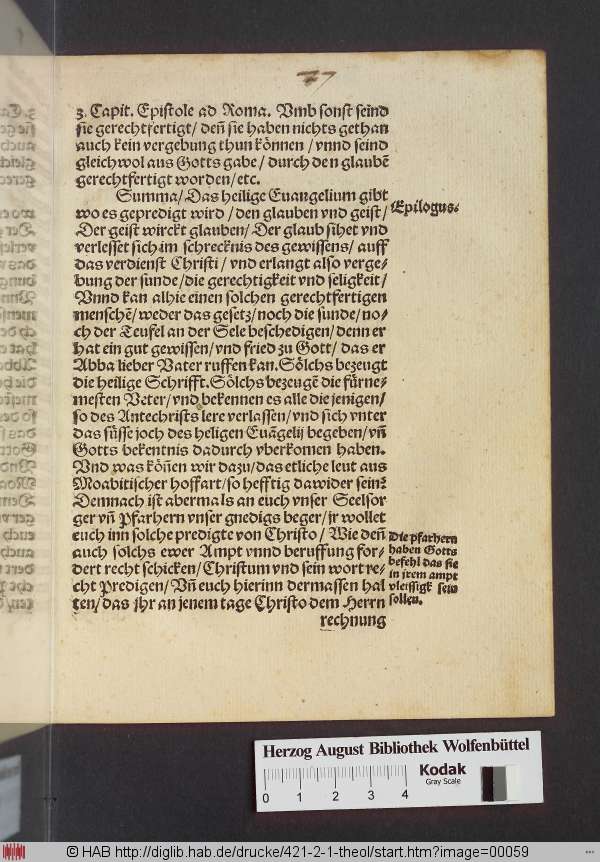 77
3. Capit. Epistole ad Roma. Vmb sonst seind
sie gerechtfertigt/ deñ sie haben nichts gethan
auch kein vergebung thun können / vnnd seind
gleichwol aus Gotts gabe/ durch den glaubē
gerechtfertigt worden/etc.
Summa/ Das heilige Euangelium gibt
wo es gepredigt wird / den glauben vnd geist/
Epilogus.
Der geist wirckt glauben/ Der glaub sihet vnd
verlesset sich im schrecknis des gewissens/ auff
das verdienst Christi/ vnd erlangt also verge-
bung der sunde/die gerechtigkeit vnd seligkeit/
Vnnd kan alhie einen solchen gerechtfertigen
menschē/ weder das gesetz/ noch die sunde/ no-
ch der Teufel an der Sele beschedigen/ denn er
hat ein gut gewissen/ vnd fried zu Gott/ das er
Abba lieber Vater ruffen kan. Sölchs bezeugt
die heilige Schrifft. Sölchs bezeugē die fürne-
mesten Veter/ vnd bekennen es alle die jenigen/
so des Antechrists lere verlassen/ vnd sich vnter
das süsse joch des heligen Euāgelij begeben/ vñ
Gotts bekentnis dadurch vberkomen haben.
Vnd was köñen wir dazu/ das etliche leut aus
Moabitischer hoffart/ so hefftig dawider sein?
Demnach ist abermals an euch vnser Seelsor
ger vñ Pfarhern vnser gnedigs beger/ jr wollet
euch inn solche predigte von Christo/ Wie deñ
auch solchs ewer Ampt vnnd beruffung for-
dert recht schicken/ Christum vnd sein wort re-
cht Predigen/ Vñ euch hierinn dermassen hal
ten/ das jhr an jenem tage Christo dem Herrn
rechnung
Die pfarhern
haben Gotts
befehl das sie
in jrem ampt
vleissigk sein
sollen.
Herzog August Bibliothek Wolfenbüttel
0 1 2 3 4
Kodak
Gray Scale
© HAB http://diglib.hab.de/drucke/421-2-1-theol/start.htm?image=00059